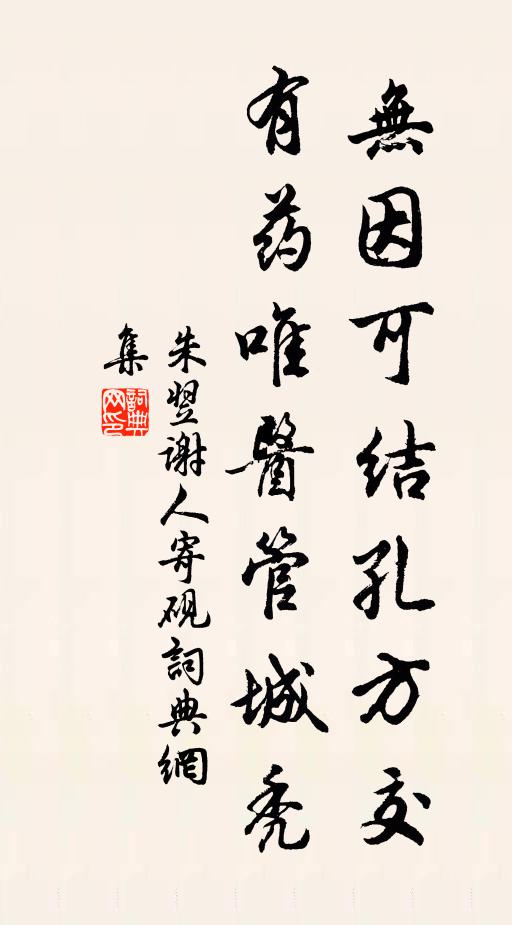 無因可结孔方交
有药唯醫管城秃
朱翌谢人寄砚詞典網
集
詞典
网印